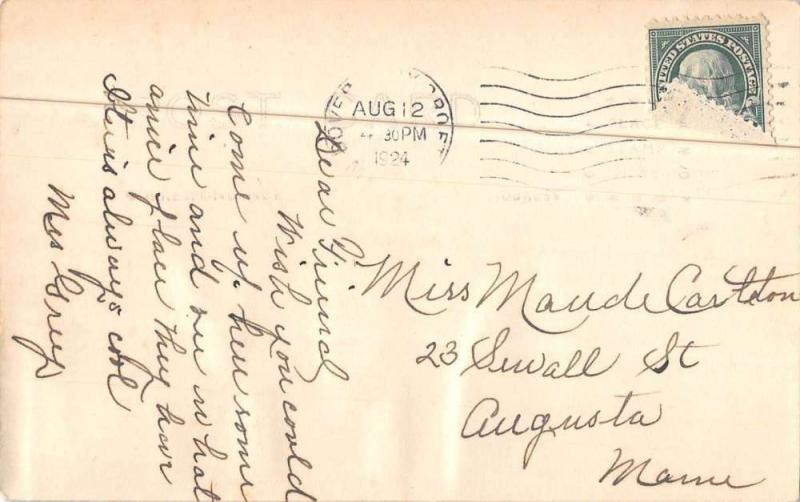 UNITED STATES POSTAGE
DOVER
AUG 12
30 PM
1924
Dear Friend
Wish you could
Come up here some
time and see what
a nice place they have
It is always cool
Mrs
Miss Maude Carlton
23 Sewall St
Augusta
Maine